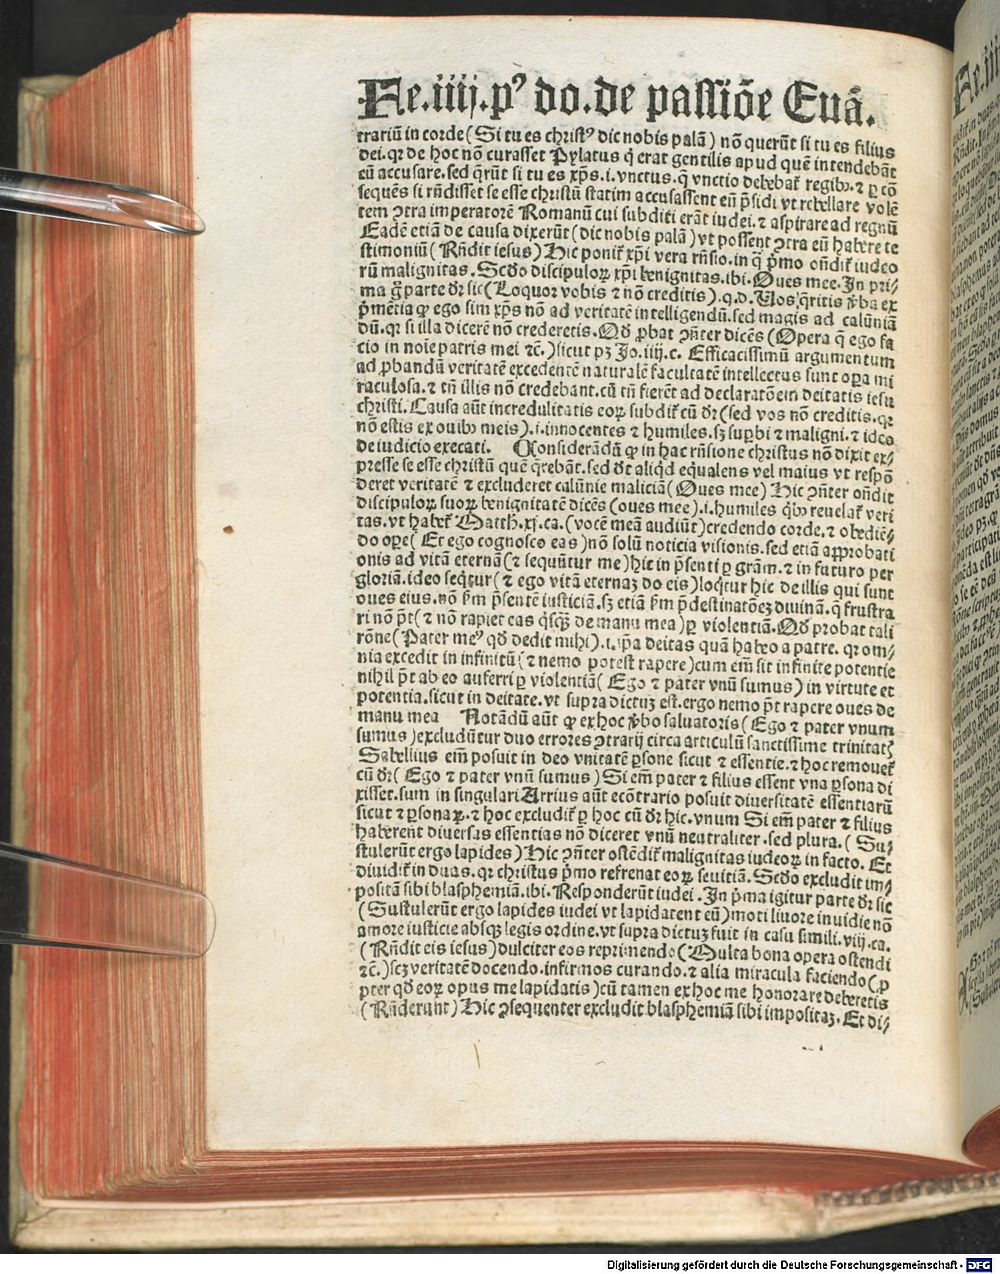 Fe.iiij.pꝰ do.de paſſiōe Euā.
trariū in corde (Si tu es chriſtꝰ dic nobis palā) nō querūt ſi tu es filius
dei. qꝛ de hoc nō curaſſet Pylatus q̄ erat gentilis apud quē intendebāt
eū accuſare. ſed q̄rūt ſi tu es xp̄s .i. vnctus. q̄ vnctio debebat᷑ regibꝰ. ⁊ ꝑ cō
ſequēs ſi rn̄diſſet ſe eſſe chriſtū ſtatim accuſaſſent eū p̄ſidi vt rebellare volē
tem ꝯtra imperatorē Romanū cui ſubditi erāt iudei. ⁊ aſpirare ad regnū
Eadē etiā de cauſa dixerūt (dic nobis palā) vt poſſent ꝯtra eū habere te
ſtimoniū (Rn̄dit ieſus) Hic ponit᷑ xp̄i vera rn̄ſio. in q̄ p̄mo on̄dit᷑ iudeo
rū malignitas. Scd̄o diſcipuloꝝ xp̄i benignitas. ibi. Oues mee. In pri⸗
ma g̊ parte dr̄ ſic (Loquor vobis ⁊ nō creditis) .q.d. Uos q̄ritis v̄ba ex
p̄mētia ꝙ ego ſim xp̄s nō ad veritatē intelligendū. ſed magis ad calūniā
dū. qꝛ ſi illa dicerē nō crederetis. Qd̄ ꝓbat ꝯn̄ter dicēs (Opera q̄ ego fa
cio in noīe patris mei ⁊c̄.) ſicut pꝫ Jo.iiij.c. Efficaciſſimū argumentum
ad ꝓbandū veritatē excedentē naturalē facultatē intellectus ſunt oꝑa mi
raculoſa. ⁊ tn̄ illis nō credebant. cū tn̄ fierēt ad declaratōem deitatis ieſu
chriſti. Cauſa aūt incredulitatis eoꝝ ſubdit᷑ cū dr̄ (ſed vos nō creditis. qꝛ
nō eſtis ex ouibꝰ meis) .i. innocentes ⁊ humiles. ſꝫ ſuꝑbi ⁊ maligni. ⁊ ideo
de iudicio execati. Conſiderādū ꝙ in hac rn̄ſione chriſtus nō dixit ex⸗
preſſe ſe eſſe chriſtū quē q̄rebāt. ſed dc̄t aliqͥd equalens vel maius vt reſpō
deret veritatē ⁊ excluderet calūnie maliciā (Oues mee) Hic ꝯn̄ter on̄dit
diſcipuloꝝ ſuoꝝ benignitatē dicēs (oues mee) .i. humiles qͥbꝰ reuelat᷑ veri
tas. vt habet᷑ Matth̄.xj.ca. (vocē meā audiūt) credendo corde. ⁊ obediē⸗
do oꝑe (Et ego cognoſco eas) nō ſolū noticia viſionis. ſed etiā approbati
onis ad vitā eternā (⁊ ſequūtur me) hic in p̄ſenti ꝑ grām. ⁊ in futuro per
gloriā. ideo ſeqͥtur (⁊ ego vitā eternaꝫ do eis) loqͥtur hic de illis qui ſunt
oues eius. nō ẜm p̄ſentē iuſticiā. ſꝫ etiā ẜm p̄deſtinatōeꝫ diuinā. q̄ fruſtra
ri nō p̄t (⁊ nō rapiet eas qͥſqͣꝫ de manu mea) ꝑ violentiā. Qd̄ probat tali
rōne (Pater meꝰ qd̄ dedit mihi) .i. ip̄a deitas quā habeo a patre. qꝛ om⸗
nia excedit in infinitū (⁊ nemo poteſt rapere) cum em̄ ſit infinite potentie
nihil p̄t ab eo auferri ꝑ violentiā (Ego ⁊ pater vnū ſumus) in virtute et
potentia. ſicut in deitate. vt ſupra dictuꝫ eſt. ergo nemo p̄t rapere oues de
manu mea Notādū aūt ꝙ ex hoc v̄bo ſaluatoris (Ego ⁊ pater vnum
ſumus) excludūtur duo errores ꝯtrarij circa articulū ſanctiſſime trinitatꝭ
Sabellius em̄ poſuit in deo vnitatē ꝑſone ſicut ⁊ eſſentie. ⁊ hoc remouet᷑
cū dr̄ (Ego ⁊ pater vnū ſumus) Si em̄ pater ⁊ filius eſſent vna ꝑſona di
xiſſet. ſum in ſingulari Arrius aūt ecōtrario poſuit diuerſitatē eſſentiarū
ſicut ⁊ ꝑſonaꝝ. ⁊ hoc excludit᷑ ꝑ hoc cū dr̄ hic. vnum Si em̄ pater ⁊ filius
haberent diuerſas eſſentias nō diceret vnū neutraliter. ſed plura. (Su⸗
ſtulerūt ergo lapides) Hic ꝯn̄ter oſtēdit᷑ malignitas iudeoꝝ in facto. Et
diuidit᷑ in duas. qꝛ chriſtus p̄mo refrenat eoꝝ ſeuitiā. Scd̄o excludit im⸗
poſitā ſibi blaſphemiā. ibi. Reſponderūt iudei. In p̄ma igitur parte dr̄ ſic
(Suſtulerūt ergo lapides iudei vt lapidarent eū) moti liuore inuidie nō
amore iuſticie abſqꝫ legis ordine. vt ſupra dictuꝫ fuit in caſu ſimili. viij.ca.
(Rn̄dit eis ieſus) dulciter eos reprimendo (Multa bona opera oſtendi
⁊c̄.) ſcꝫ veritatē docendo. infirmos curando. ⁊ alia miracula faciendo (ꝓ
pter qd̄ eoꝝ opus me lapidatis) cū tamen ex hoc me honorare deberetis
(Rn̄derunt) Hic ꝯſequenter excludit blaſphemiā ſibi impoſitaꝫ. Et di⸗
Digitalisierung gefördert durch die Deutsche Forschungsgemeinschaft - DFG